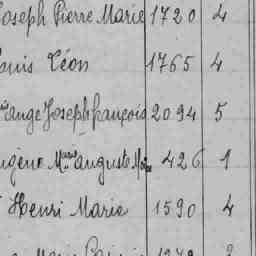 Joseph Pierre Marie 1720 4
Louis Léon 1765 4
ange Joseph françois 2094 5
ugène auguste 426 1
Henri Marie 1590 4